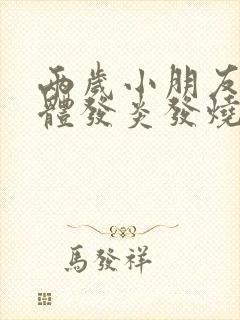 兩歲小朋友
體發炎發燒
馬發祥